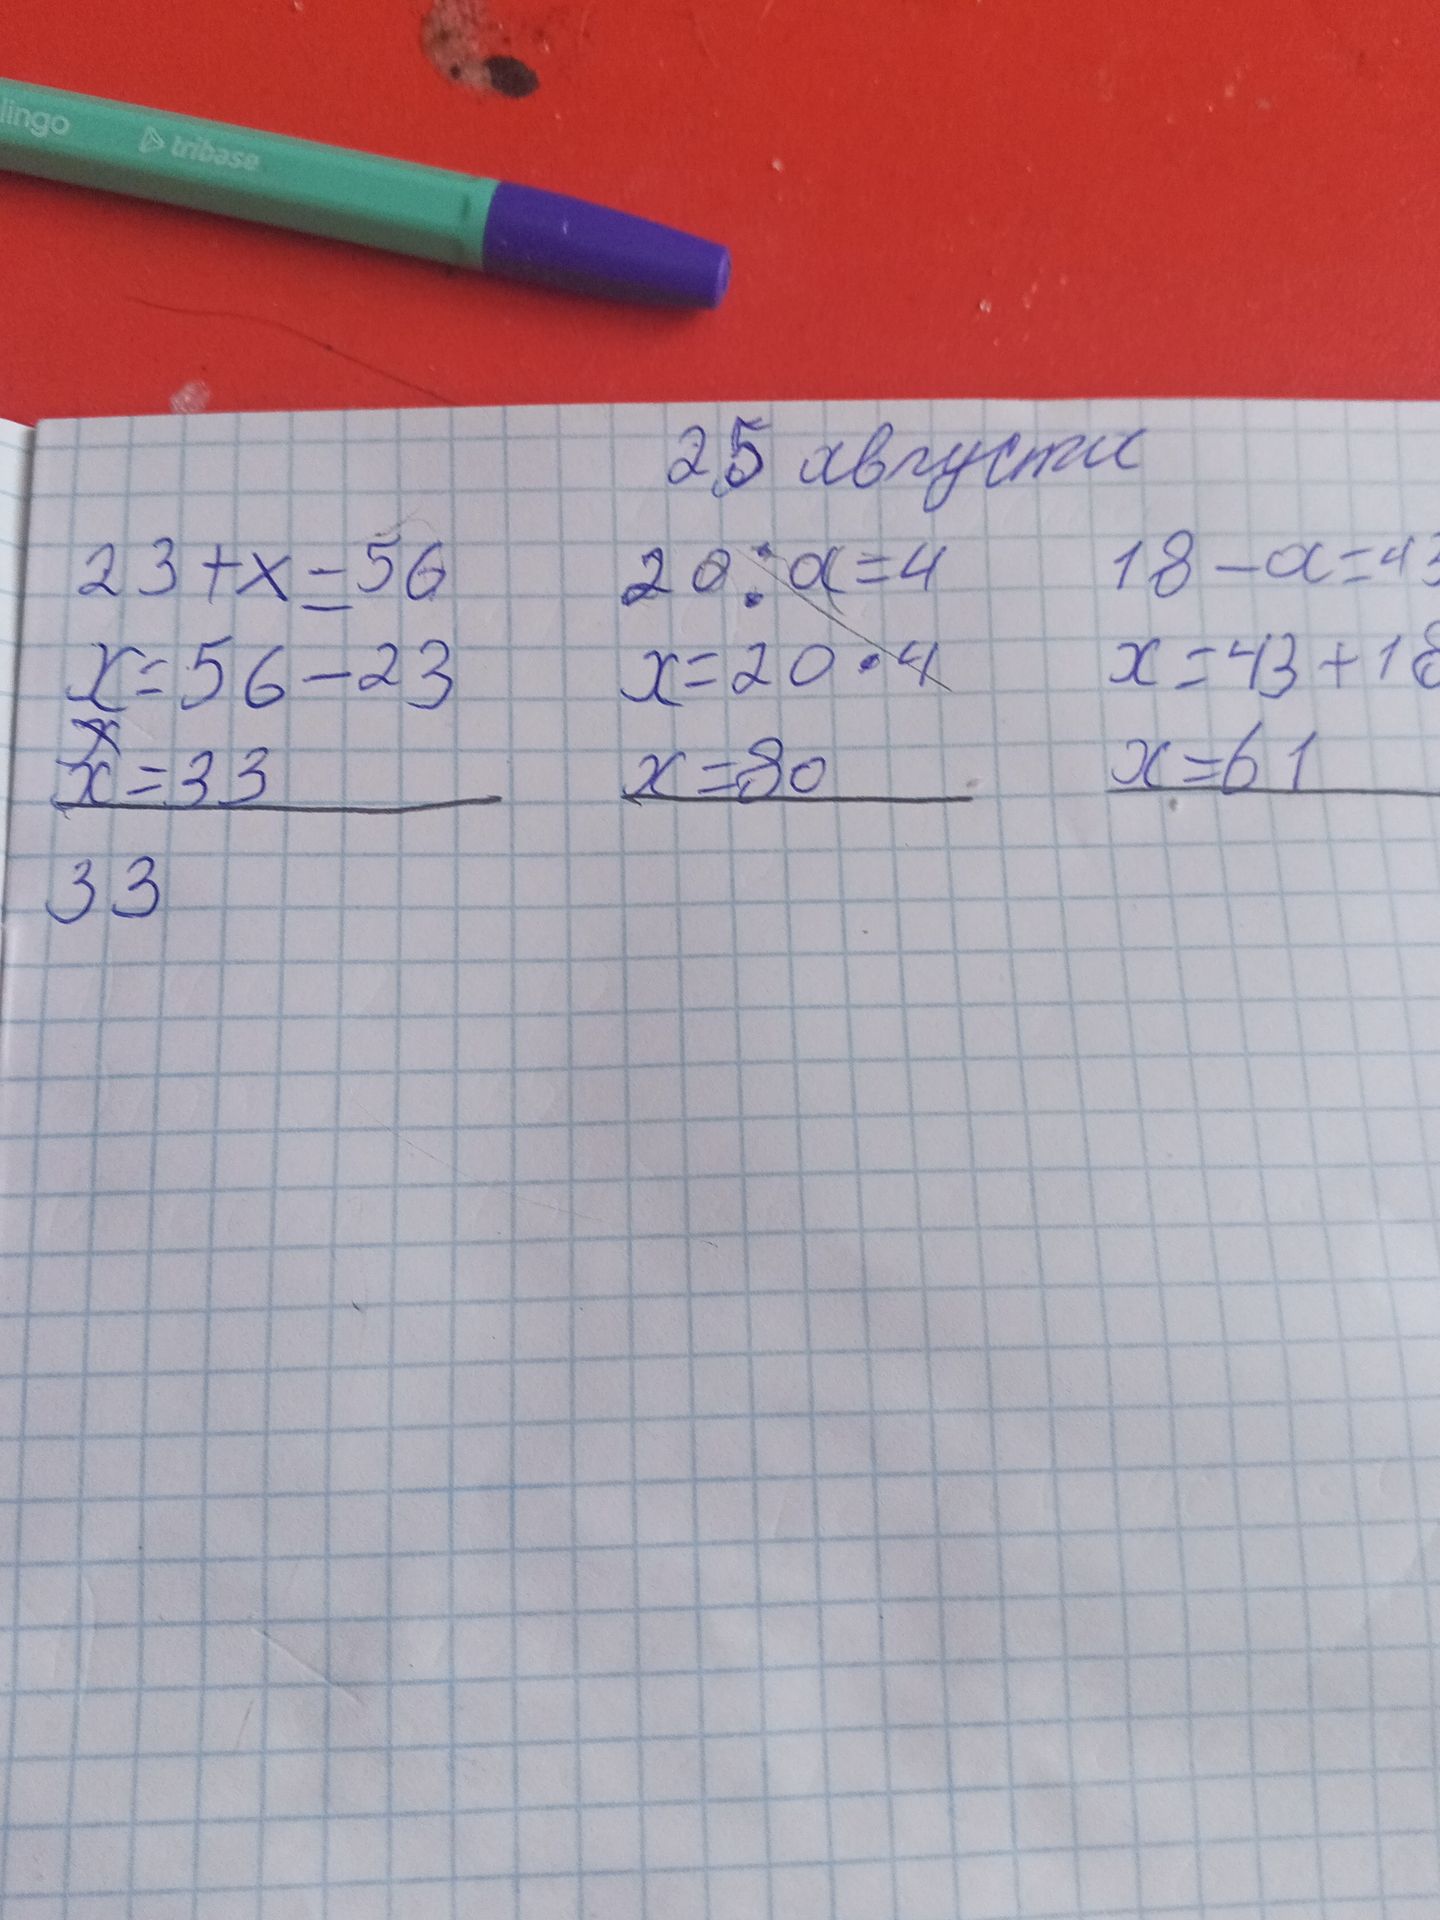 lingo tribase
25 августа
23+x=56 20:a=4 18-a=43
x=56-23 x=20·4 x=43+18
x
x=33 x=80 x=61
33